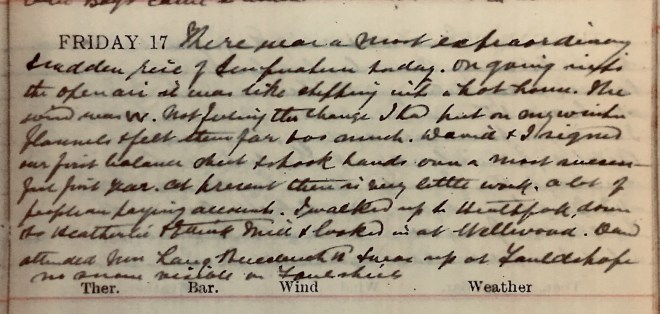 FRIDAY 17 There was a most extraordinary
sudden rise of Temperature today. On going into
the open air it was like stepping into a hot house. The
wind was W. Not feeling the change I had put on my winter
flannels & felt them far too much. David & I signed
our first balance sheet & shook hands over a most success-
ful first year. At present there is very little work. a lot of
people are paying accounts. I walked up to down
to Heatherlie & Mill & looked in at Wellwood. David
attended Mrs Lang Buccleuch St & was up at Fauldshope
no snow visible on
Ther. Bar. Wind Weather